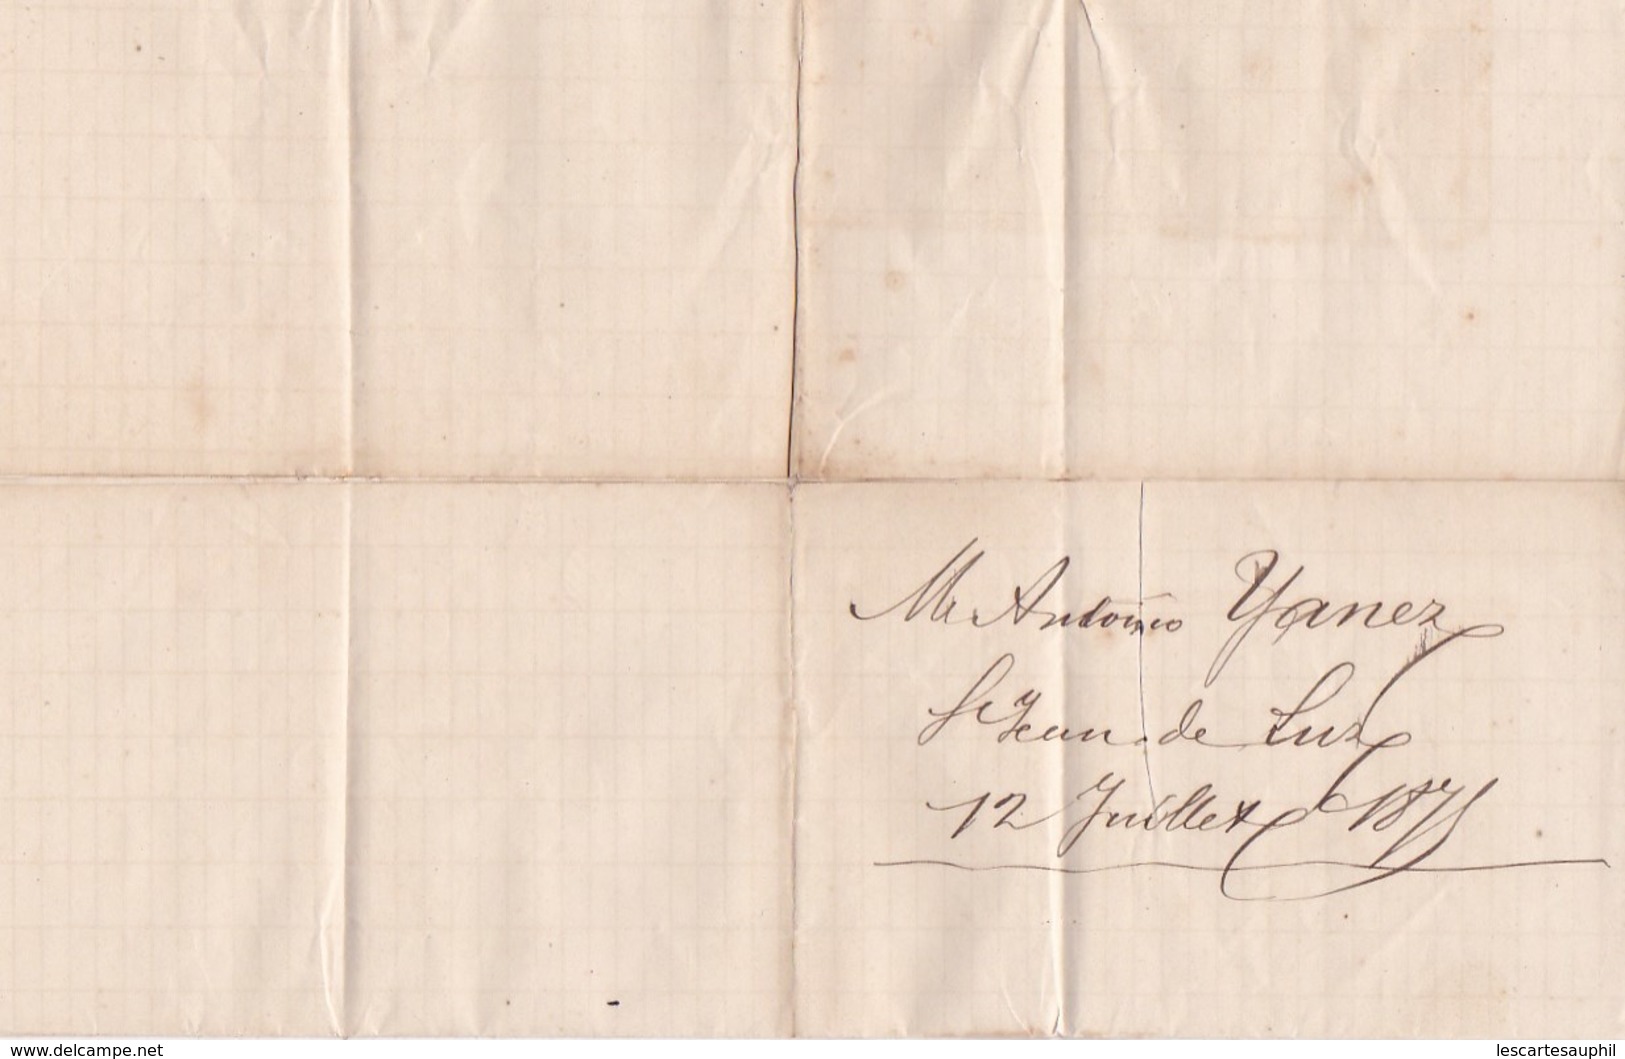 Mr Antonio Yanez
St Jean de Luz
12 Juillet 1875
www.delcampe.net
lescartesauphil